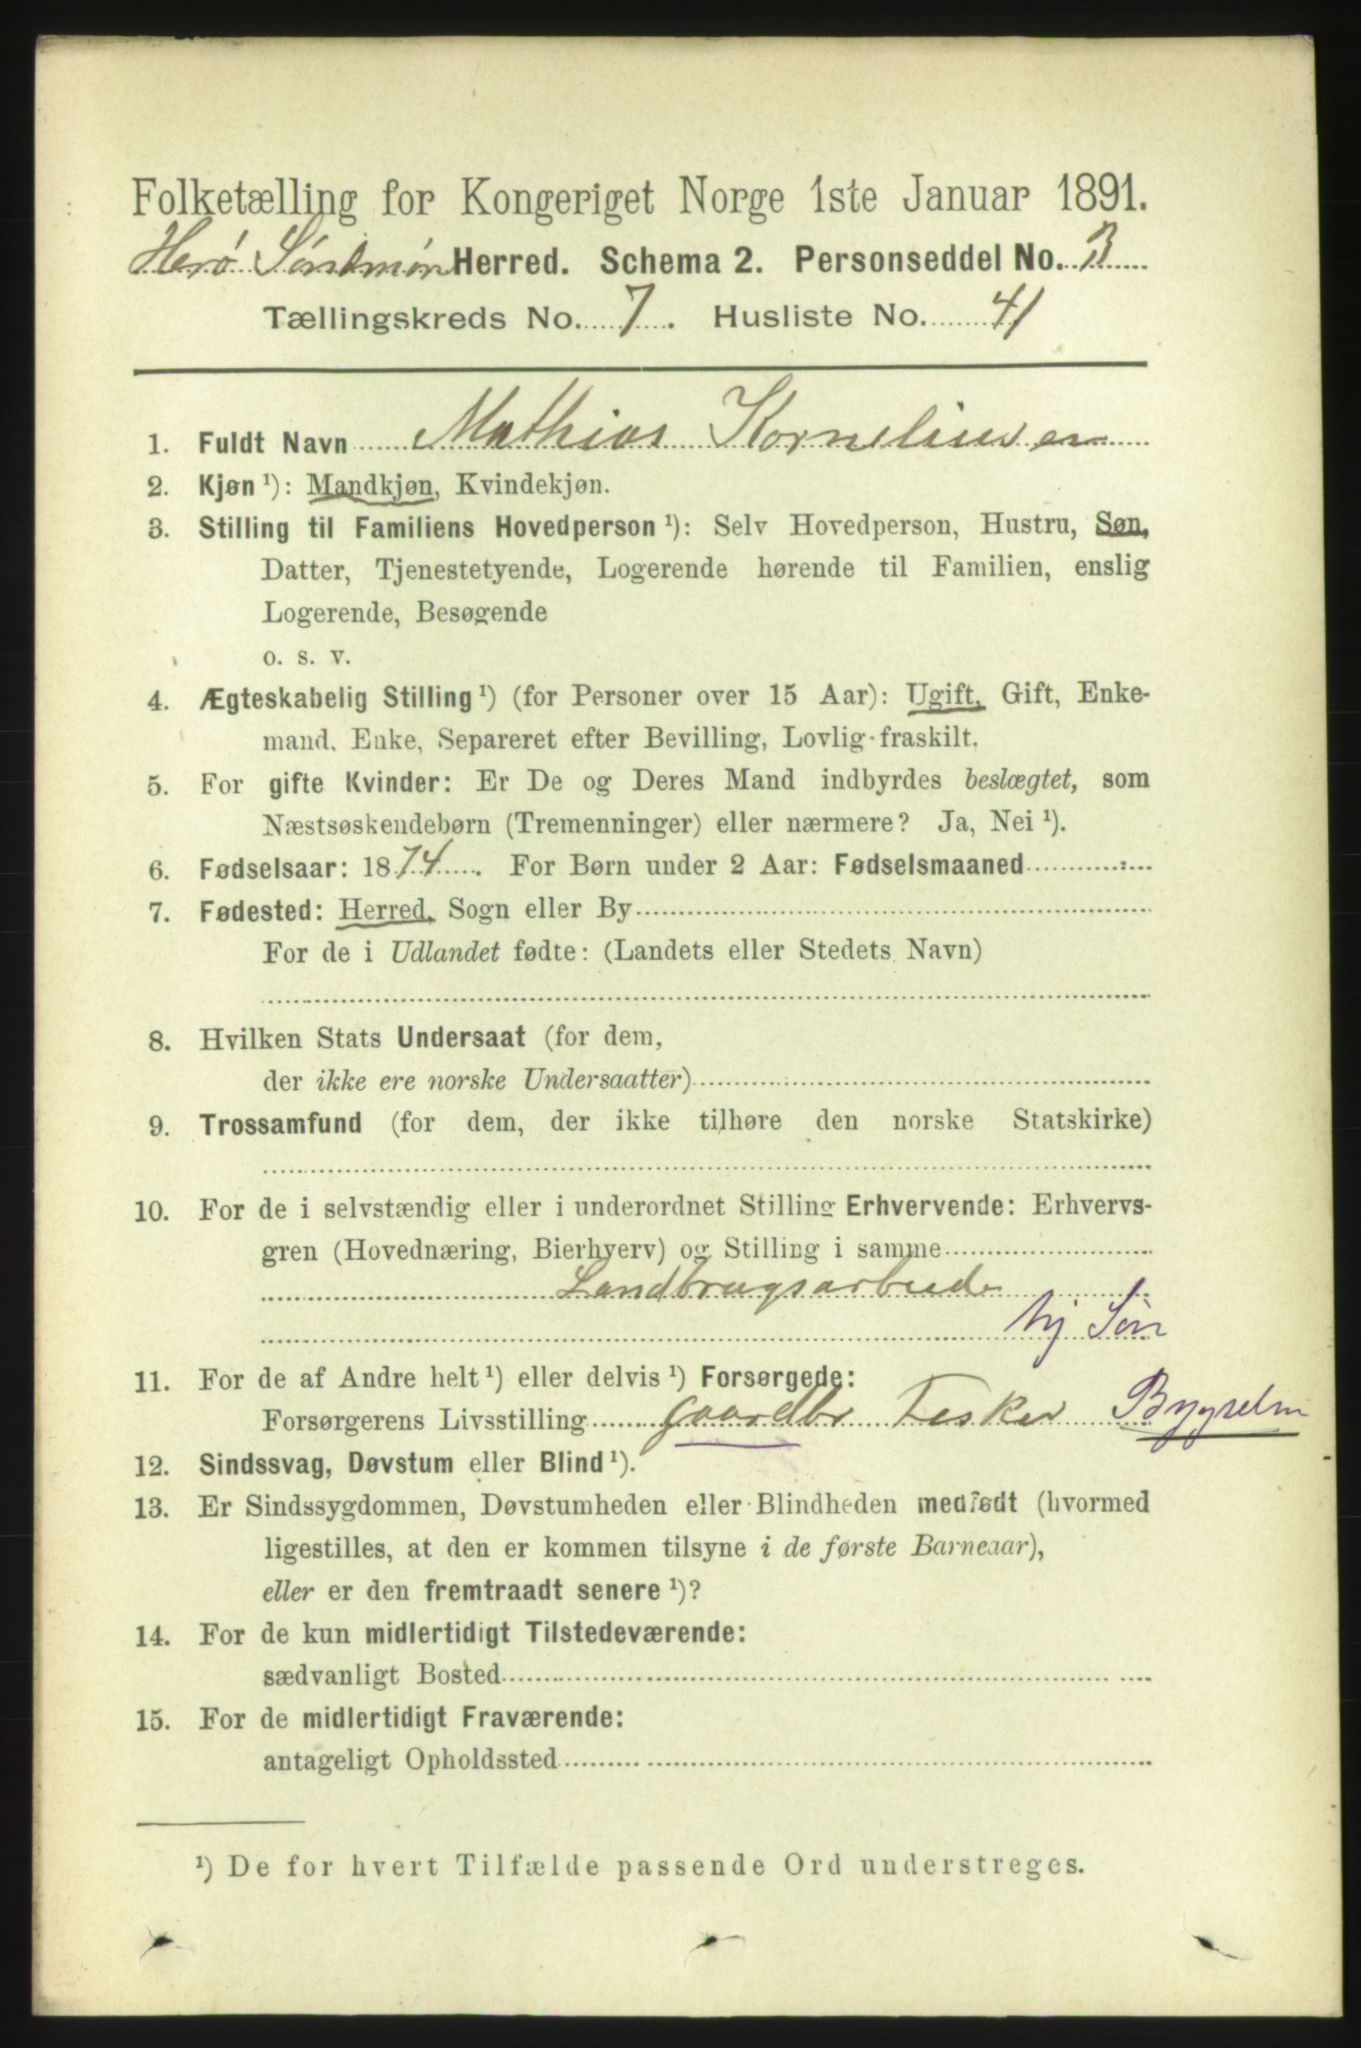 Folketælling for Kongeriget Norge 1ste Januar 1891.
Herø Søndmør Herred. Schema 2. Personseddel No. 3
Tællingskreds No. 7. Husliste No. 41
1. Fuldt Navn Mathias Korneliusen
2. Kjøn ¹): Mandkjøn, Kvindekjøn.
3. Stilling til Familiens Hovedperson ¹): Selv Hovedperson, Hustru, Søn,
Datter, Tjenestetyende, Logerende hørende til Familien, enslig
Logerende, Besøgende
o. s. v.
4. Ægteskabelig Stilling ¹) (for Personer over 15 Aar): Ugift, Gift, Enke-
mand, Enke, Separeret efter Bevilling, Lovlig fraskilt.
5. For gifte Kvinder: Er De og Deres Mand indbyrdes beslægtet, som
Næstsøskendebørn (Tremenninger) eller nærmere? Ja, Nei ¹).
6. Fødselsaar: 1874. For Børn under 2 Aar: Fødselsmaaned
7. Fødested: Herred, Sogn eller By
For de i Udlandet fødte: (Landets eller Stedets Navn)
8. Hvilken Stats Undersaat (for dem,
der ikke ere norske Undersaatter)
9. Trossamfund (for dem, der ikke tilhøre den norske Statskirke)
10. For de i selvstændig eller i underordnet Stilling Erhvervende: Erhvervs-
gren (Hovednæring, Bierhverv) og Stilling i samme
Landbrugsarbeide
hj Søn
11. For de af Andre helt ¹) eller delvis ¹) Forsørgede:
Forsørgerens Livsstilling gaardbr Fisker
12. Sindssvag, Døvstum eller Blind ¹).
13. Er Sindssygdommen, Døvstumheden eller Blindheden medfødt (hvormed
ligestilles, at den er kommen tilsyne i de første Barneaar),
eller er den fremtraadt senere ¹)?
14. For de kun midlertidigt Tilstedeværende:
sædvanligt Bosted
15. For de midlertidigt Fraværende:
antageligt Opholdssted
¹) De for hvert Tilfælde passende Ord understreges.